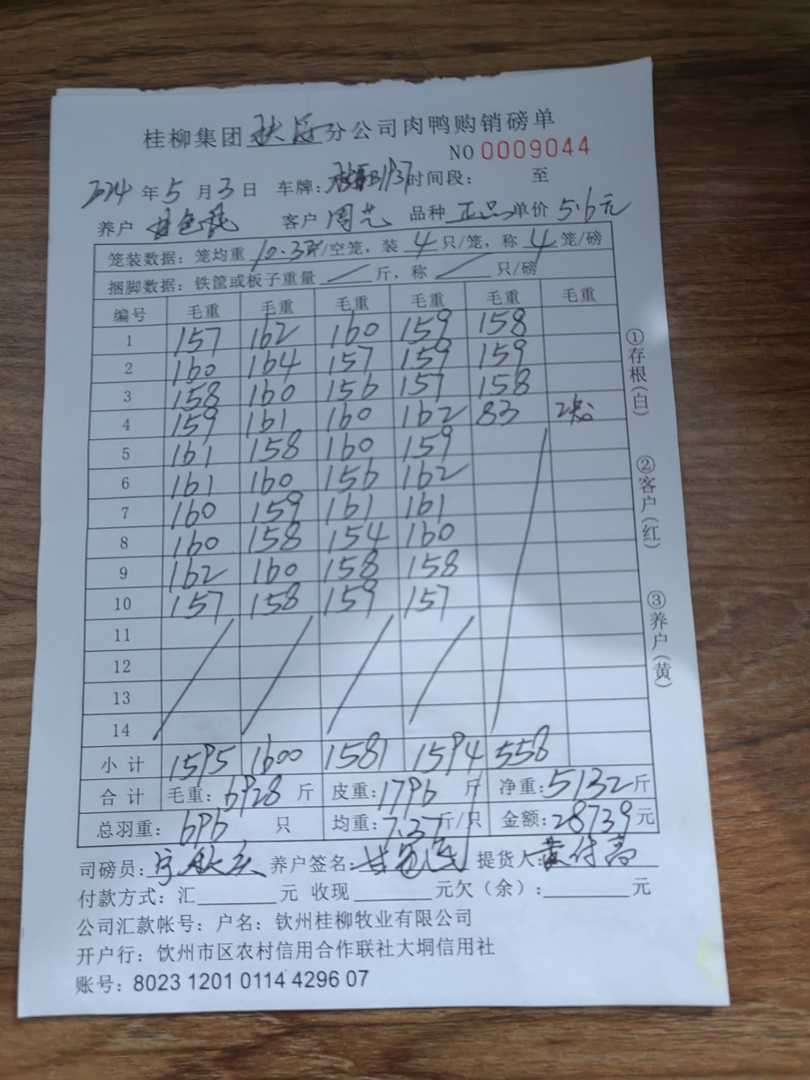 桂柳集团 分公司肉鸭购销磅单
NO 0009044
2024 年 5 月 3 日 车牌: 时间段: 至
养户 客户 周艺 品种 正品 单价 5.6元
笼装数据: 笼均重 10.3斤/空笼, 装 4 只/笼, 称 4 笼/磅
捆脚数据: 铁筐或板子重量 斤, 称 只/磅
编号 毛重 毛重 毛重 毛重 毛重 毛重
1 157 162 160 159 158
2 160 164 157 159 159
3 158 160 156 157 158
4 159 161 160 162 83 2笼
5 161 158 160 159
6 161 160 156 162
7 160 159 161 161
8 160 158 154 160
9 162 160 158 158
10 157 158 159 157
11
12
13
14
小计 1595 1600 1581 1594 558
合计 毛重: 6928 斤 皮重: 1796 斤 净重: 5132 斤
总羽重: 696 只 均重: 7.37 斤/只 金额: 28739 元
司磅员: 养户签名: 提货人: 黄付高
付款方式: 汇 元 收现 元欠(余): 元
公司汇款帐号: 户名: 钦州桂柳牧业有限公司
开户行: 钦州市区农村信用合作联社大垌信用社
账号: 8023 1201 0114 4296 07
①存根(白)
②客户(红)
③养户(黄)